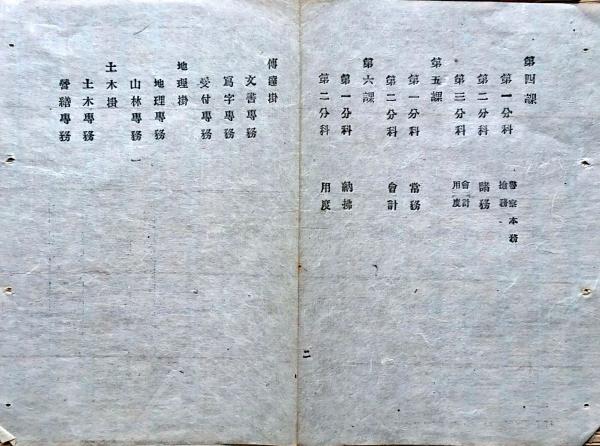 第四課
第一分科　警察本務
檢務
第二分科　諸務
第三分科　會計
用度
第五課
第一分科　常務
第二分科　會計
第六課
第一分科　納拂
第二分科　用度
二
傳達掛
文書專務
寫字專務
受付專務
地理掛
地理專務
山林專務
土木掛
土木專務
營繕專務